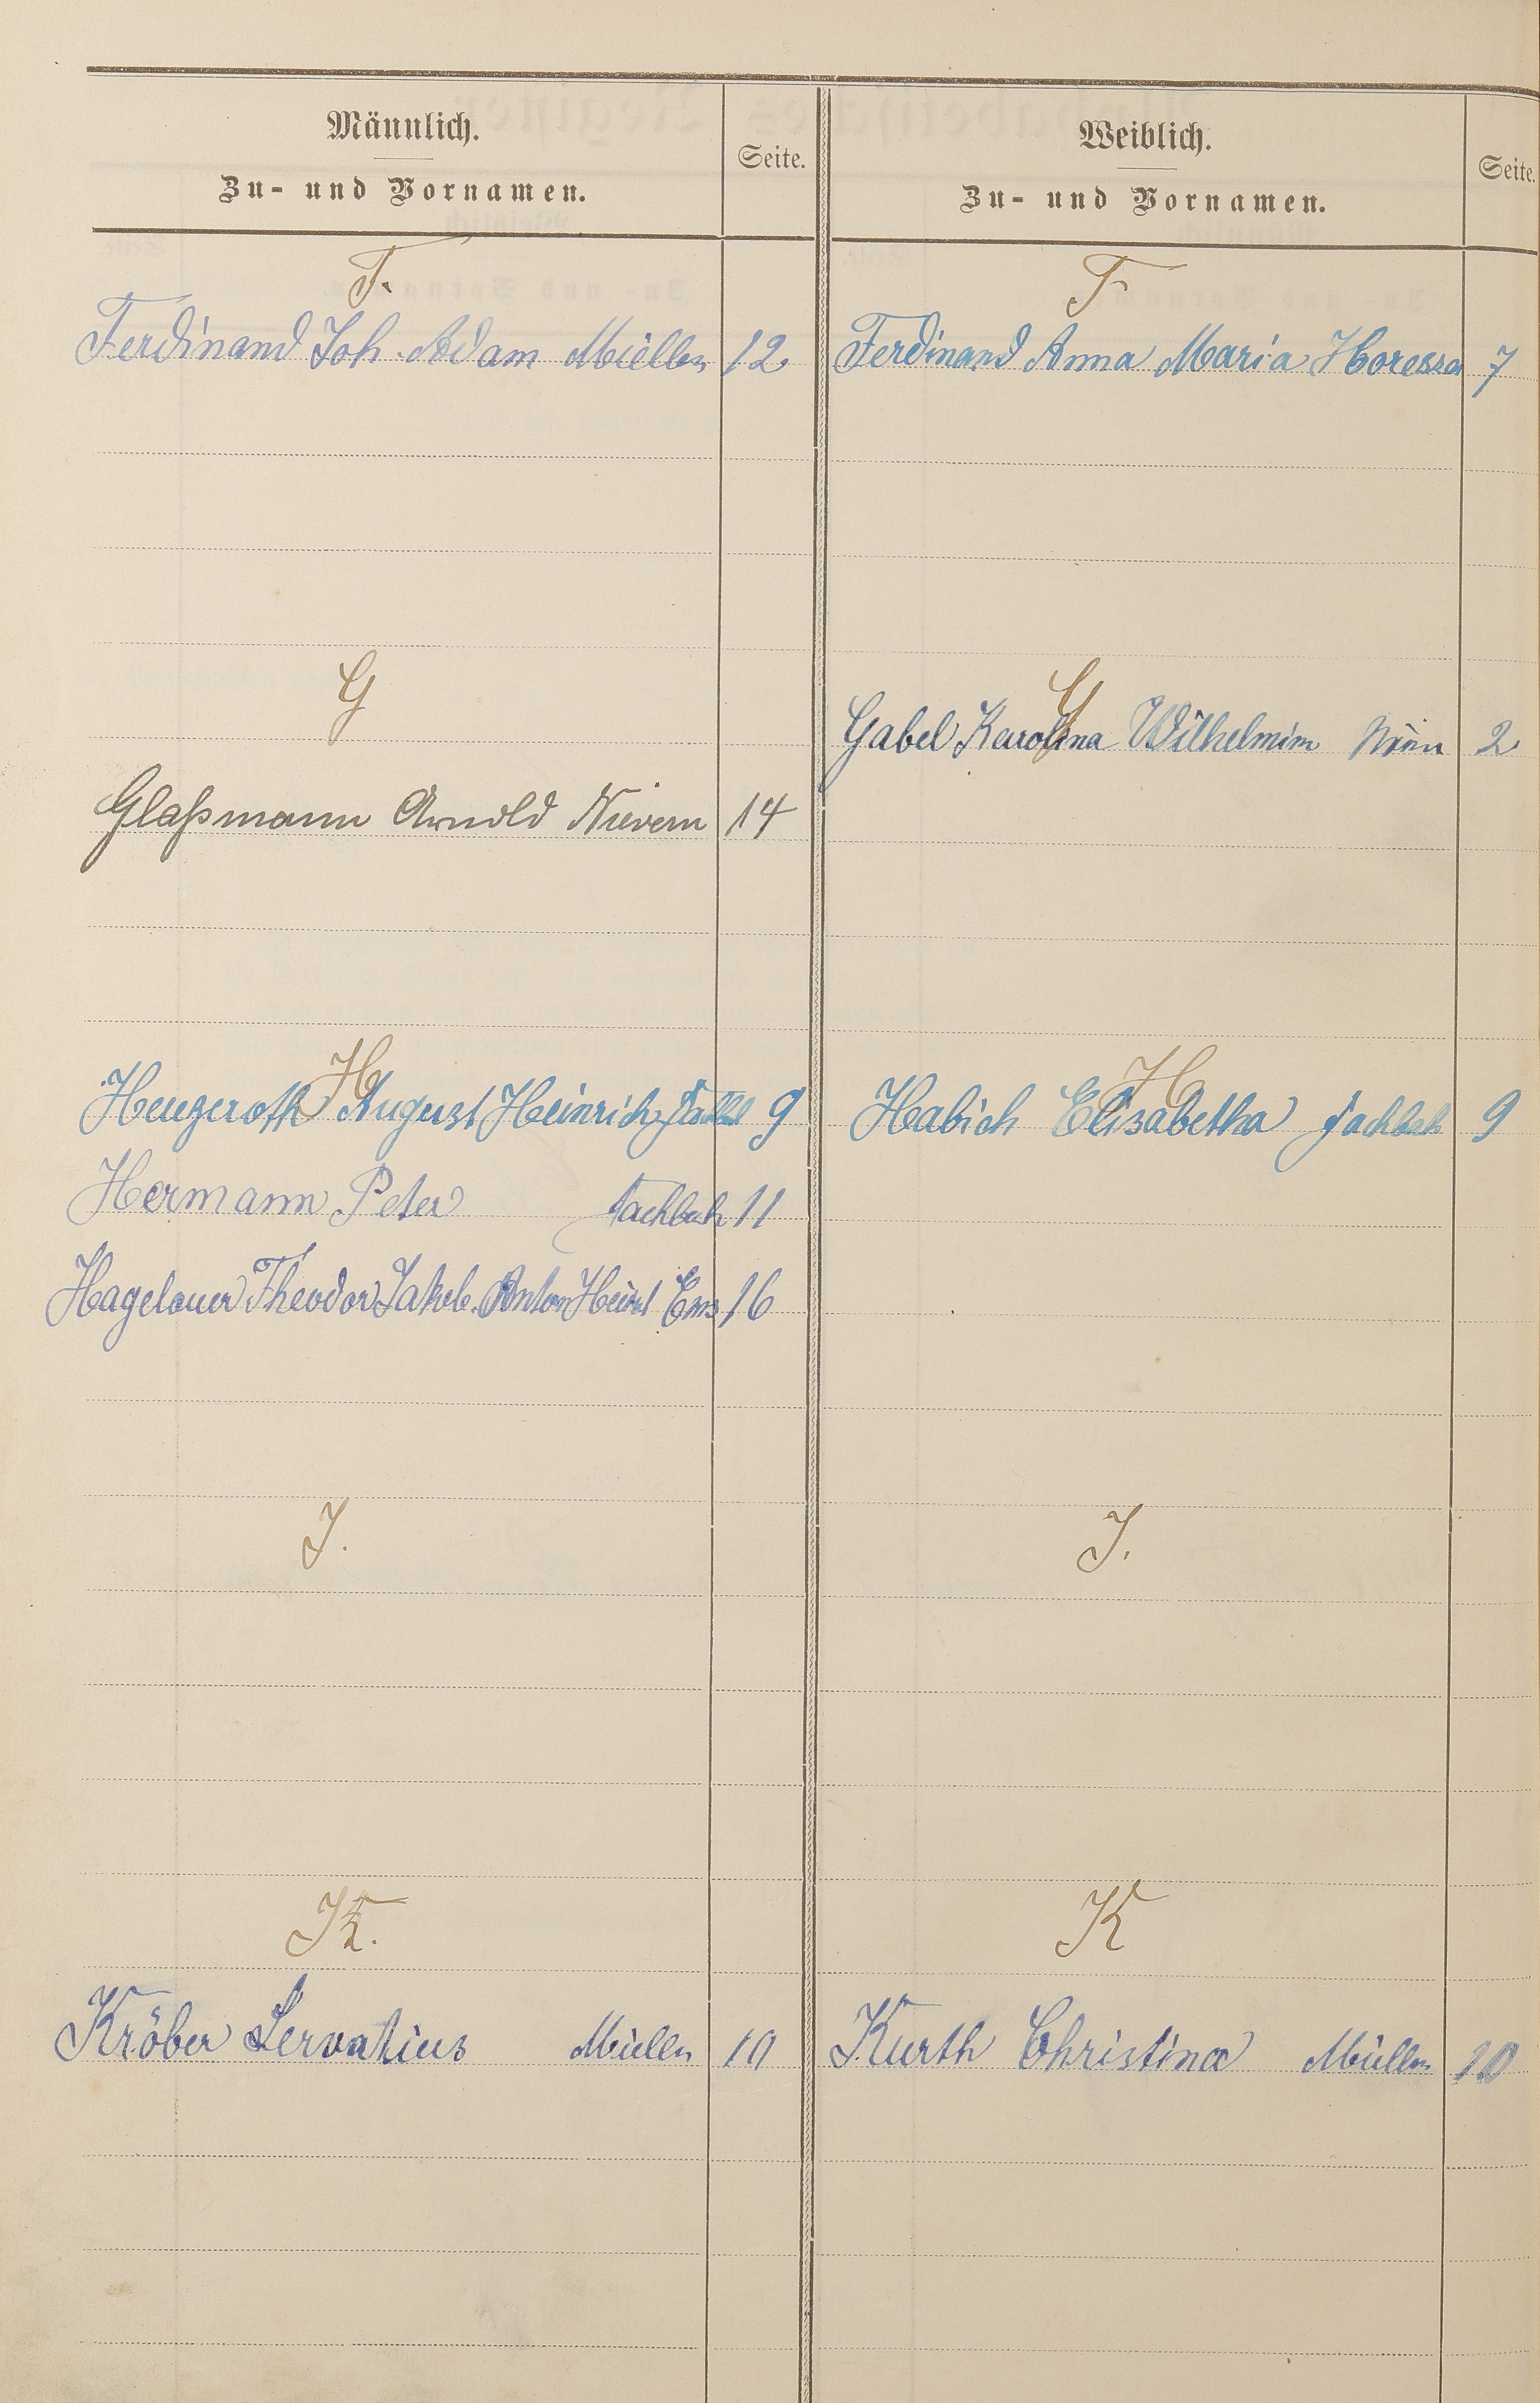 Männlich.
Zu- und Vornamen.
Seite.
Weiblich.
Zu- und Vornamen.
Seite.
F.
F.
Ferdinand Joh. Adam Miellen 12
Ferdinand Anna Maria 7
G
G
Gabel Karolina 2
Glaßmann Arnold Nievern 14
H
H
August Heinrich 9
Habich Elisabetha Fachbach 9
Hermann Peter Fachbach 11
Hagelauer Theodor Jakob Anton Ems 16
J.
J.
K.
K
Kröber Servatius Miellen
Kurth Christina Miellen 10